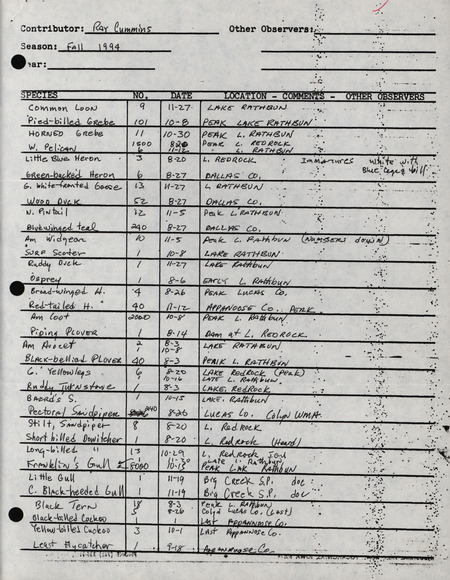 Contributor: Ray Cummins Other Observers:
Season: Fall 1994
ear:
SPECIES NO. DATE LOCATION - COMMENTS - OTHER OBSERVERS
Common Loon 9 11-27 LAKE RATHBUN
Pied-billed Grebe 101 10-8 PEAK LAKE RATHBUN
HORNED Grebe 11 10-30 PEAK L. RATHBUN
W. Pelican 1500 820 PEAK L. REDROCK
6 11-12 L. RATHBUN
Little Blue Heron 3 8-20 L. REDROCK Immatures white with
Blue legs & bill
Green-backed Heron 6 8-27 DALLAS CO.
G. White-fronted Goose 13 11-27 L. RATHBUN
WOOD DUCK 52 8-27 DALLAS CO.
N. Pintail 12 11-5 Peak L. RATHBUN
Blue-winged teal 240 8-27 DALLAS CO.
Am Widgeon 10 11-5 Peak L. Rathbun (NUMBERS down)
SURF Scoter 1 10-8 LAKE RATHBUN
Ruddy Duck 1 11-27 LAKE Rathbun
Osprey 1 8-6 EARLY L. Rathbun
Broad-winged H. 4 8-26 PEAK LUCAS Co.
Red-tailed H. 40 11-12 APPANOOSE CO. PEAK
Am Coot 2060 10-8 PEAK L. Rathbun
Piping PLOVER 1 8-14 Dam at L. REDROCK
Am Avocet 2 8-3 LAKE RATHBUN
1 10-8
BLACK-bellied PLOVER 40 8-3 PEAK L. RATHBUN
G. Yellowlegs 6 8-20 LAKE REDROCK (Peak)
1 10-16 LATE L. Rathbun
Ruddy Turnstone 1 8-3 LAKE REDROCK
BAIRD'S S. 1 10-15 LAKE RATHBUN
Pectoral Sandpiper 8-26 LUCAS Co. Colyn WMA
Stilt, Sandpiper 8 8-20 L. RedRock
Short billed Dowitcher 1 8-20 L. RedRock (Heard)
Long-billed " 13 10-29 L. RedRock
Franklin's Gull 8000 10-15 PEAK LAKE Rathbun
Little Gull 1 11-19 Big Creek S.P. doc
C. Black-headed Gull 1 11-19 Big Creek S.P. doc
Black Tern 18 8-3 Peak L. Rathbun
8-26 Colyn Lucas Co. (Last)
Black-billed Cuckoo 1 Last Appanoose Co.
Yellow-billed Cuckoo 3 10-1 Last Appanoose Co.
Least Flycatcher 1 9-18 Appanoose Co.